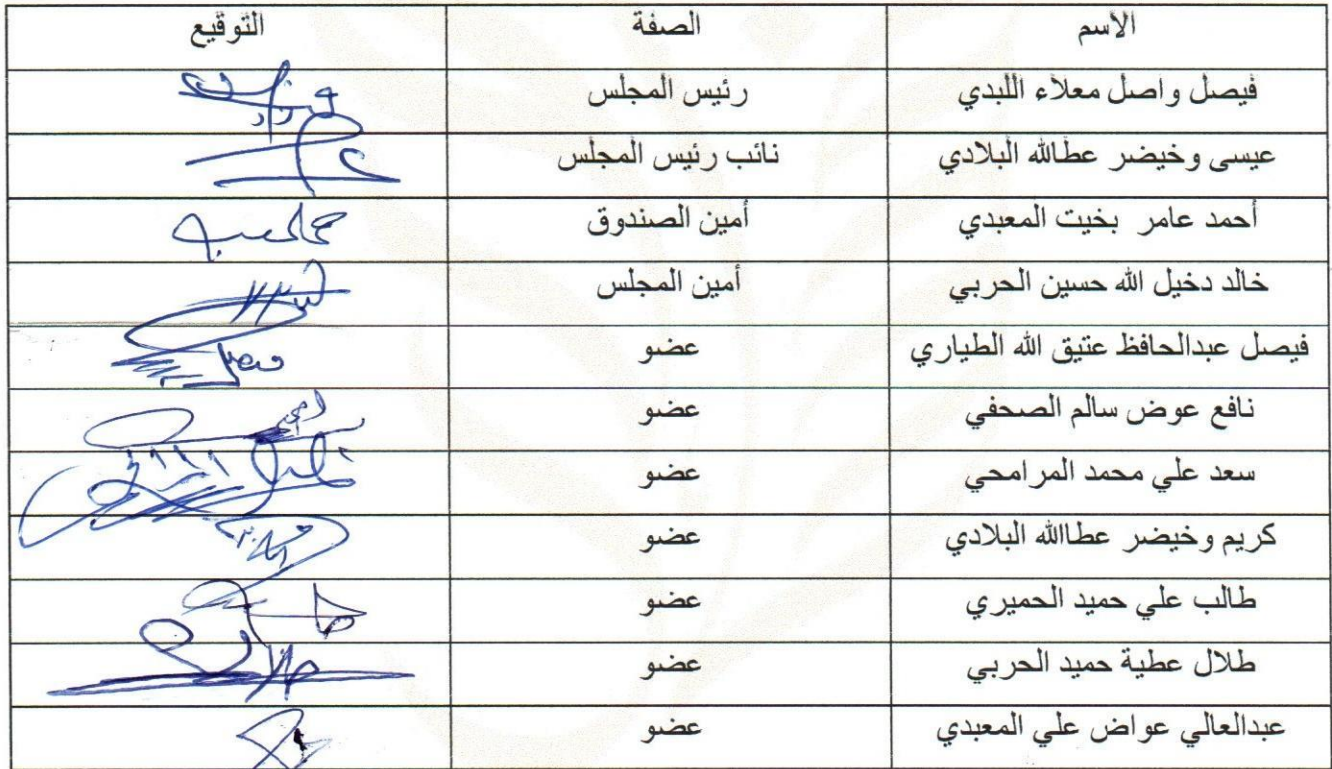 الأسم الصفة التوقيع
فيصل واصل معلاء اللبدي رئيس المجلس
عيسى وخيضر عطالله البلادي نائب رئيس المجلس
أحمد عامر بخيت المعبدي أمين الصندوق
خالد دخيل الله حسين الحربي أمين المجلس
فيصل عبدالحافظ عتيق الله الطياري عضو
نافع عوض سالم الصحفي عضو
سعد علي محمد المرامحي عضو
كريم وخيضر عطاالله البلادي عضو
طالب علي حميد الحميري عضو
طلال عطية حميد الحربي عضو
عبدالعالي عواض علي المعبدي عضو